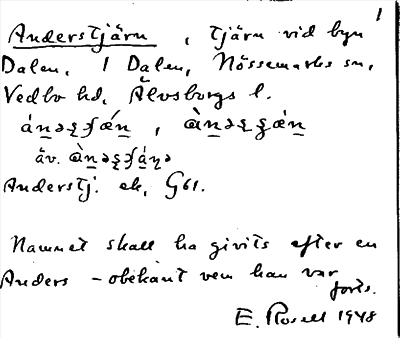 1
Anderstjärn, tjärn vid byn
Dalen, 1 Dalen, Nössemarks sn,
Vedbo hd, Älvsborgs l.
äv.
Anderstj. ek, G61.
Namnet skall ha givits efter en
Anders – obekant vem han var
forts.
E. Rosell 1948